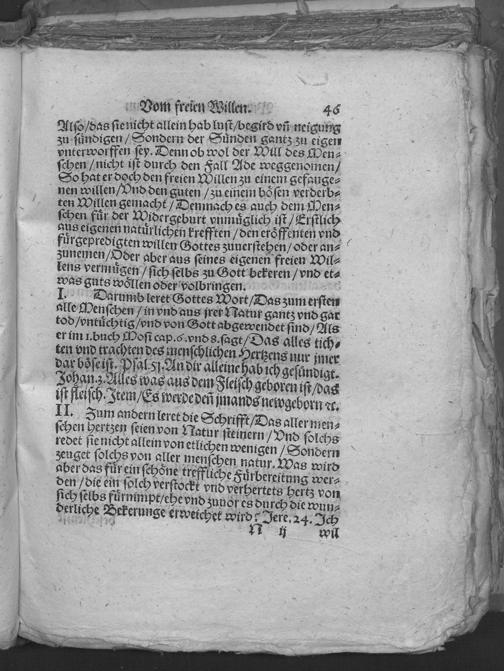 Vom freien Willen. 46
Also/das sie nicht allein hab lust/begird vñ neigung
zu sündigen/Sondern der Sünden gantz zu eigen
vnterworffen sey. Denn ob wol der Will des Men-
schen/nicht ist durch den Fall Ade weggenomen/
So hat er doch den freien Willen zu einem gefange-
nen willen/Vnd den guten/zu einem bösen verderb-
ten Willen gemacht/Demnach es auch dem Men-
schen für der Widergeburt vnmüglich ist/Erstlich
aus eigenen natürlichen krefften/den eröffenten vnd
fürgepredigten willen Gottes zuuerstehen/oder an-
zunemen/Oder aber aus seines eigenen freien Wil-
lens vermügen/sich selbs zu Gott bekeren/vnd et-
was guts wöllen oder volbringen.
I. Darumb leret Gottes Wort/Das zum ersten
alle Menschen/in vnd aus jrer Natur gantz vnd gar
tod/vntüchtig/vnd von Gott abgewendet sind/Als
er im 1.buch Mosi cap.6.vnd 8.sagt/Das alles tich-
ten vnd trachten des menschlichen Hertzens nur jmer
dar böse ist. Psal.51.An dir alleine hab ich gesündigt.
Johan.3.Alles was aus dem Fleisch geboren ist/das
ist fleisch. Item/Es werde deñ jmands newgeborn ꝛc.
II. Zum andern leret die Schrifft/Das aller men-
schen hertzen seien von Natur steinern/Vnd solchs
redet sie nicht allein von etlichen wenigen/Sondern
zeuget solchs von aller menschen natur. Was wird
aber das für ein schöne treffliche Fürbereitung wer-
den/die ein solch verstockt vnd verhertets hertz von
sich selbs fürnimpt/ehe vnd zuuor es durch die wun-
derliche Bekerunge erweichet wird? Jere.24. Ich
N ij wil